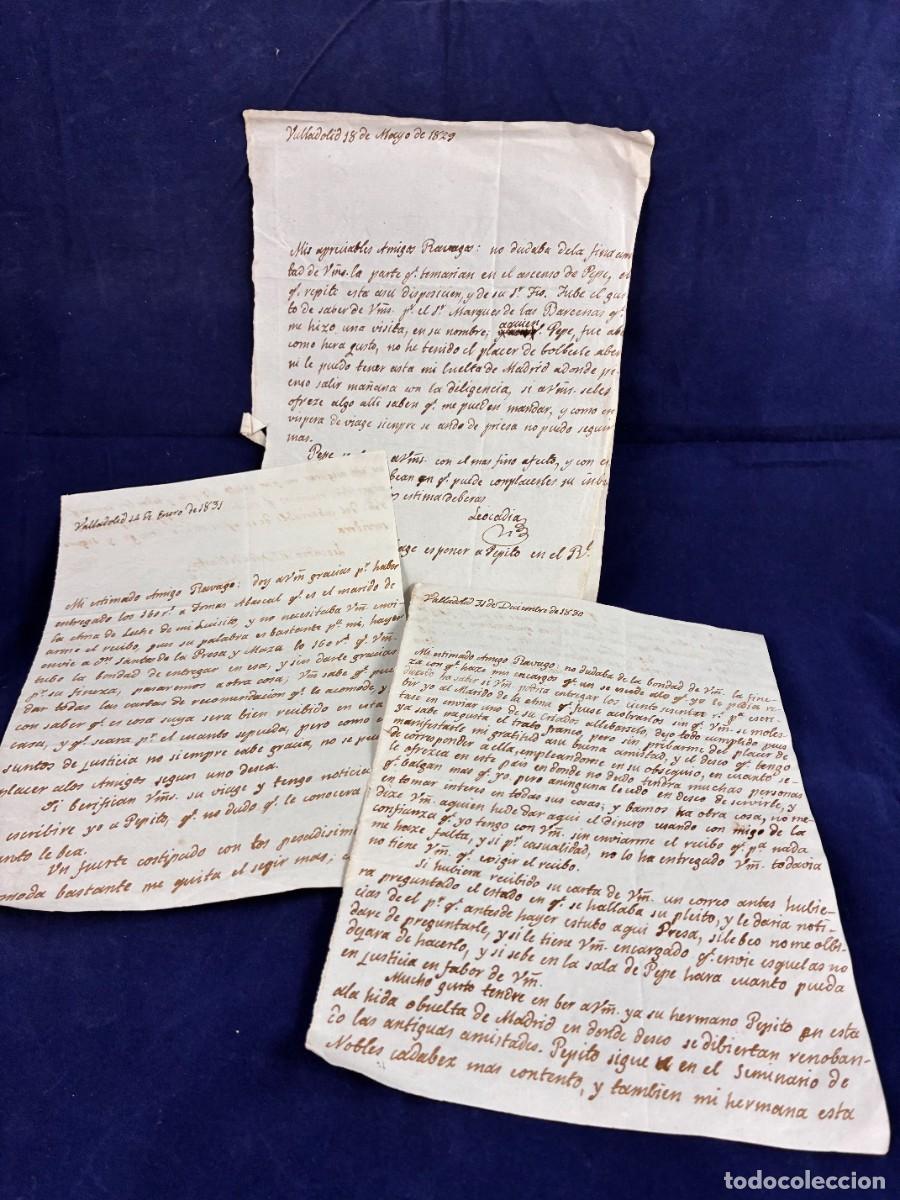 Valladolid 18 de Mayo de 1829
Mis apreciables Amigos Ravagos: no dudaba dela fina amis
tad de Vms. la parte q.e tomarian en el ascenso de Pepe, el
q.e repito esta asu disposicion, y de su S.r Tio. Tube el gus
to de saber de Vms. p.r el S.r Marques de las Barcenas q.e
me hizo una visita, en su nombre; aquien Pepe, fue abe
como hera gusto, no he tenido el placer de bolberle aber
ni le puedo tener asta mi buelta de Madrid adonde pi
enso salir mañana con la diligencia, si aVms. seles
ofreze algo alli saben q.e me pueden mandar, y como en
vispera de viage siempre se anda de priesa no puedo seguir
mas.
Pepe aVms. con el mas fino afecto, y con el
bean q.e puede complacerles su imbar
estima deberas
Leocadia
age es poner a Pepito en el R.l
Valladolid 14 de Enero de 1831
Mi estimado Amigo Ravago: doy aVm gracias p.r haber
entregado los 160 r.s a Tomas Abascal q.e es el marido de
la Ama de Leche de mi Luisito, y no necesitaba Vm envi
arme el recibo, pues su palabra es bastante p.a mi, hayer
envie a Dn Santos de la Presa y Maza lo 160 r.s q.e Vm.
tubo la bondad de entregar en esa, y sin darle gracias
p.r su fineza, pasaremos aotra cosa; Vm sabe q.e pue
dar todas las cartas de recomendacion q.e le acomode, y
con saber q.e es cosa suya sera bien recibido en esta
casa, y q.e seara p.r el cuanto sepueda, pero como en
suntos de Justicia no siempre cabe gracia, no se pue
placer alos Amigos segun uno desea.
Si berifican Vms. su viage y tengo noticia
escribire yo a Pepito, q.e no dudo q.e le conocera
anto le bea.
Un fuerte costipado con tos pesadisima
omoda bastante me quita el segir mas;
Valladolid 31 de Diciembre de 1830
Mi estimado Amigo Ravago: no dudaba de la bondad de Vm. la fine-
za con q.e haze mis encargos q.e en se mudo also q.e yo le pedia re-
ducido ha saber si Vm. podia entregar los ciento sesenta r.s p.a escri-
bir yo al Marido de mi Ama q.e fuese acobrarlos sin q.e Vm. se moles-
tase en enviar uno de su Criados allebarselo; dejo todo cumplido pues
ya sabe maguita el trato franco, pero sin pribarme del placer de
manifestarle mi gratitud asu buena amistad, y el deseo q.e tengo
de corresponder a ella, empleandome en su obsequio, en cuanto se-
le ofrezca en este pais en donde no dudo tendra muchas personas
q.e balgan mas q.e yo. pero aninguna le cedo en deseo de servirle, y
en tomar interes en todas sus cosas; y bamos ha otra cosa, no me
dize Vm. aquien hede dar aqui el dinero usando con migo de la
confianza q.e yo tengo con Vm. sin enviarme el recibo q.e p.a nada
me haze falta, y si p.r casualidad, no lo ha entregado Vm. todavia
no tiene Vm. q.e exigir el recibo.
Si hubiera recibido su carta de Vm. un correo antes hubie-
ra preguntado el estado en q.e se hallaba su pleito, y le daria noti-
cias de el p.r q.e antesde hayer estubo aqui Presa, si lebeo no me olbi-
dare de preguntarle, y si le tiene Vm. encargado q.e envie esquelas no
dejara de hacerlo, y si sebe en la sala de Pepe hara cuanto pueda
en justicia en fabor de Vm.
Mucho gusto tendre en ber aVm. ya su hermano Pepito en esta
ala hida o buelta de Madrid en donde deseo se dibiertan renoban-
do las antiguas amistades. Pepito sigue en el Seminario de
Nobles cadabez mas contento, y tambien mi hermana esta
todocoleccion